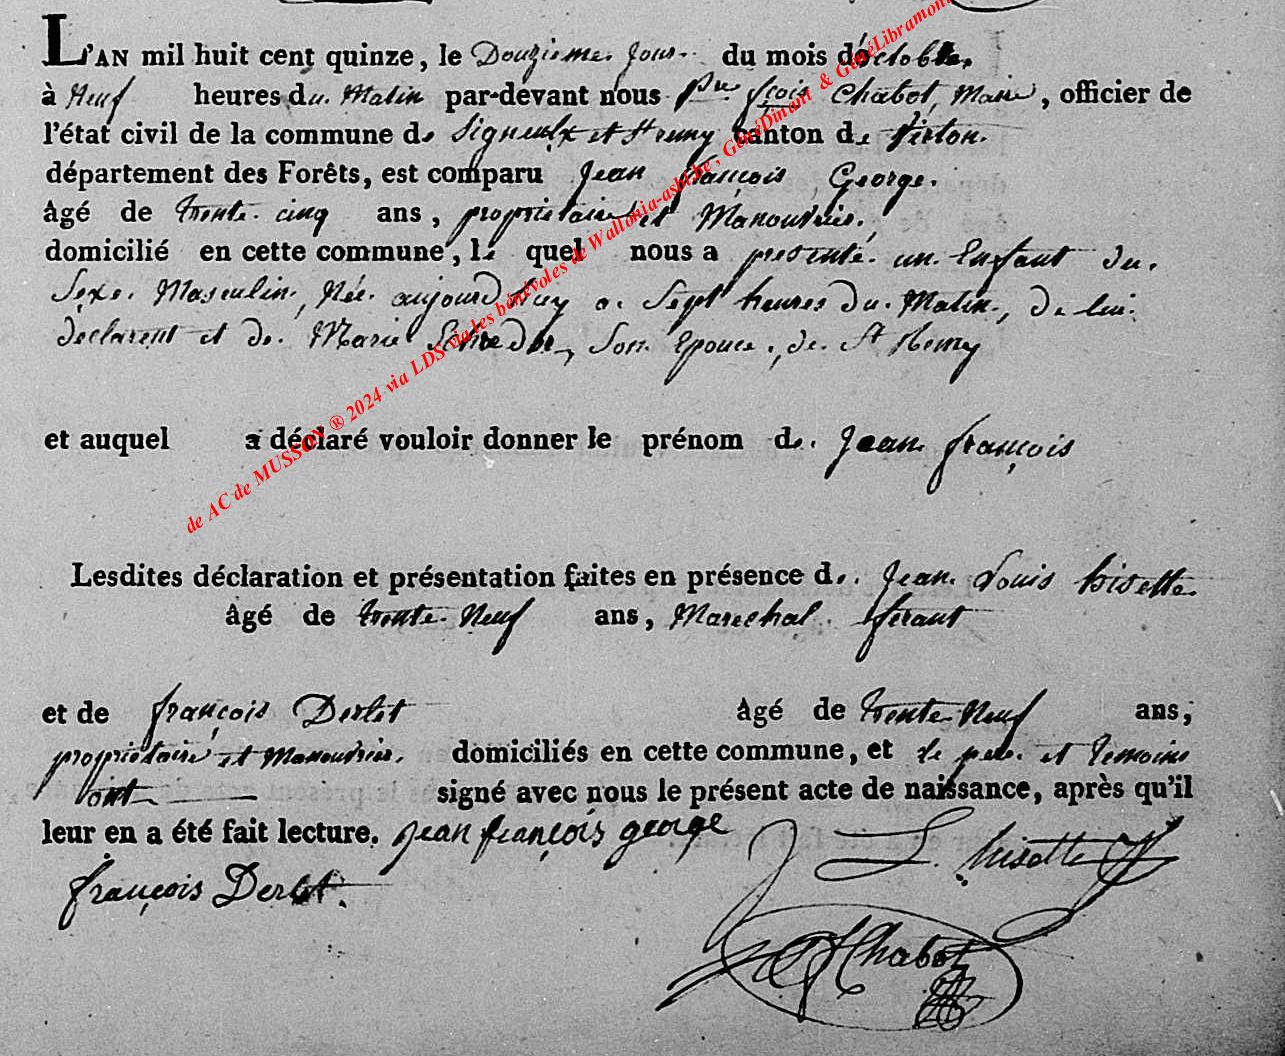 L'AN mil huit cent quinze, le Douzieme jour du mois d'octobre.
à Neuf heures du Matin par-devant nous Pre fçois Chabot, Maire, officier de
l'état civil de la commune de Signeulx et St remy canton de Virton.
département des Forêts, est comparu Jean françois George.
âgé de trente cinq ans, proprietaire et Manouvrier,
domicilié en cette commune, le quel nous a presenté un Enfant du
Sexe Masculin, Née aujourd huy a Sept heures du Matin, de lui
declarent et de Marie Son Epouce, de St Remy
et auquel a déclaré vouloir donner le prénom de Jean françois
Lesdites déclaration et présentation faites en présence de Jean Louis hisette
âgé de trente Neuf ans, Marechal ferant
et de françois Derlet âgé de trente Neuf ans,
proprietaire et Manouvrier, domiciliés en cette commune, et le pere et temoins
ont signé avec nous le présent acte de naissance, après qu'il
leur en a été fait lecture. jean françois george
J L hisette
françois Derlet.
Chabot
de AC de MUSSON ® 2024 via LDS via les bénévoles de Wallonia-asbl.be, GénéDinant & GénéLibramont